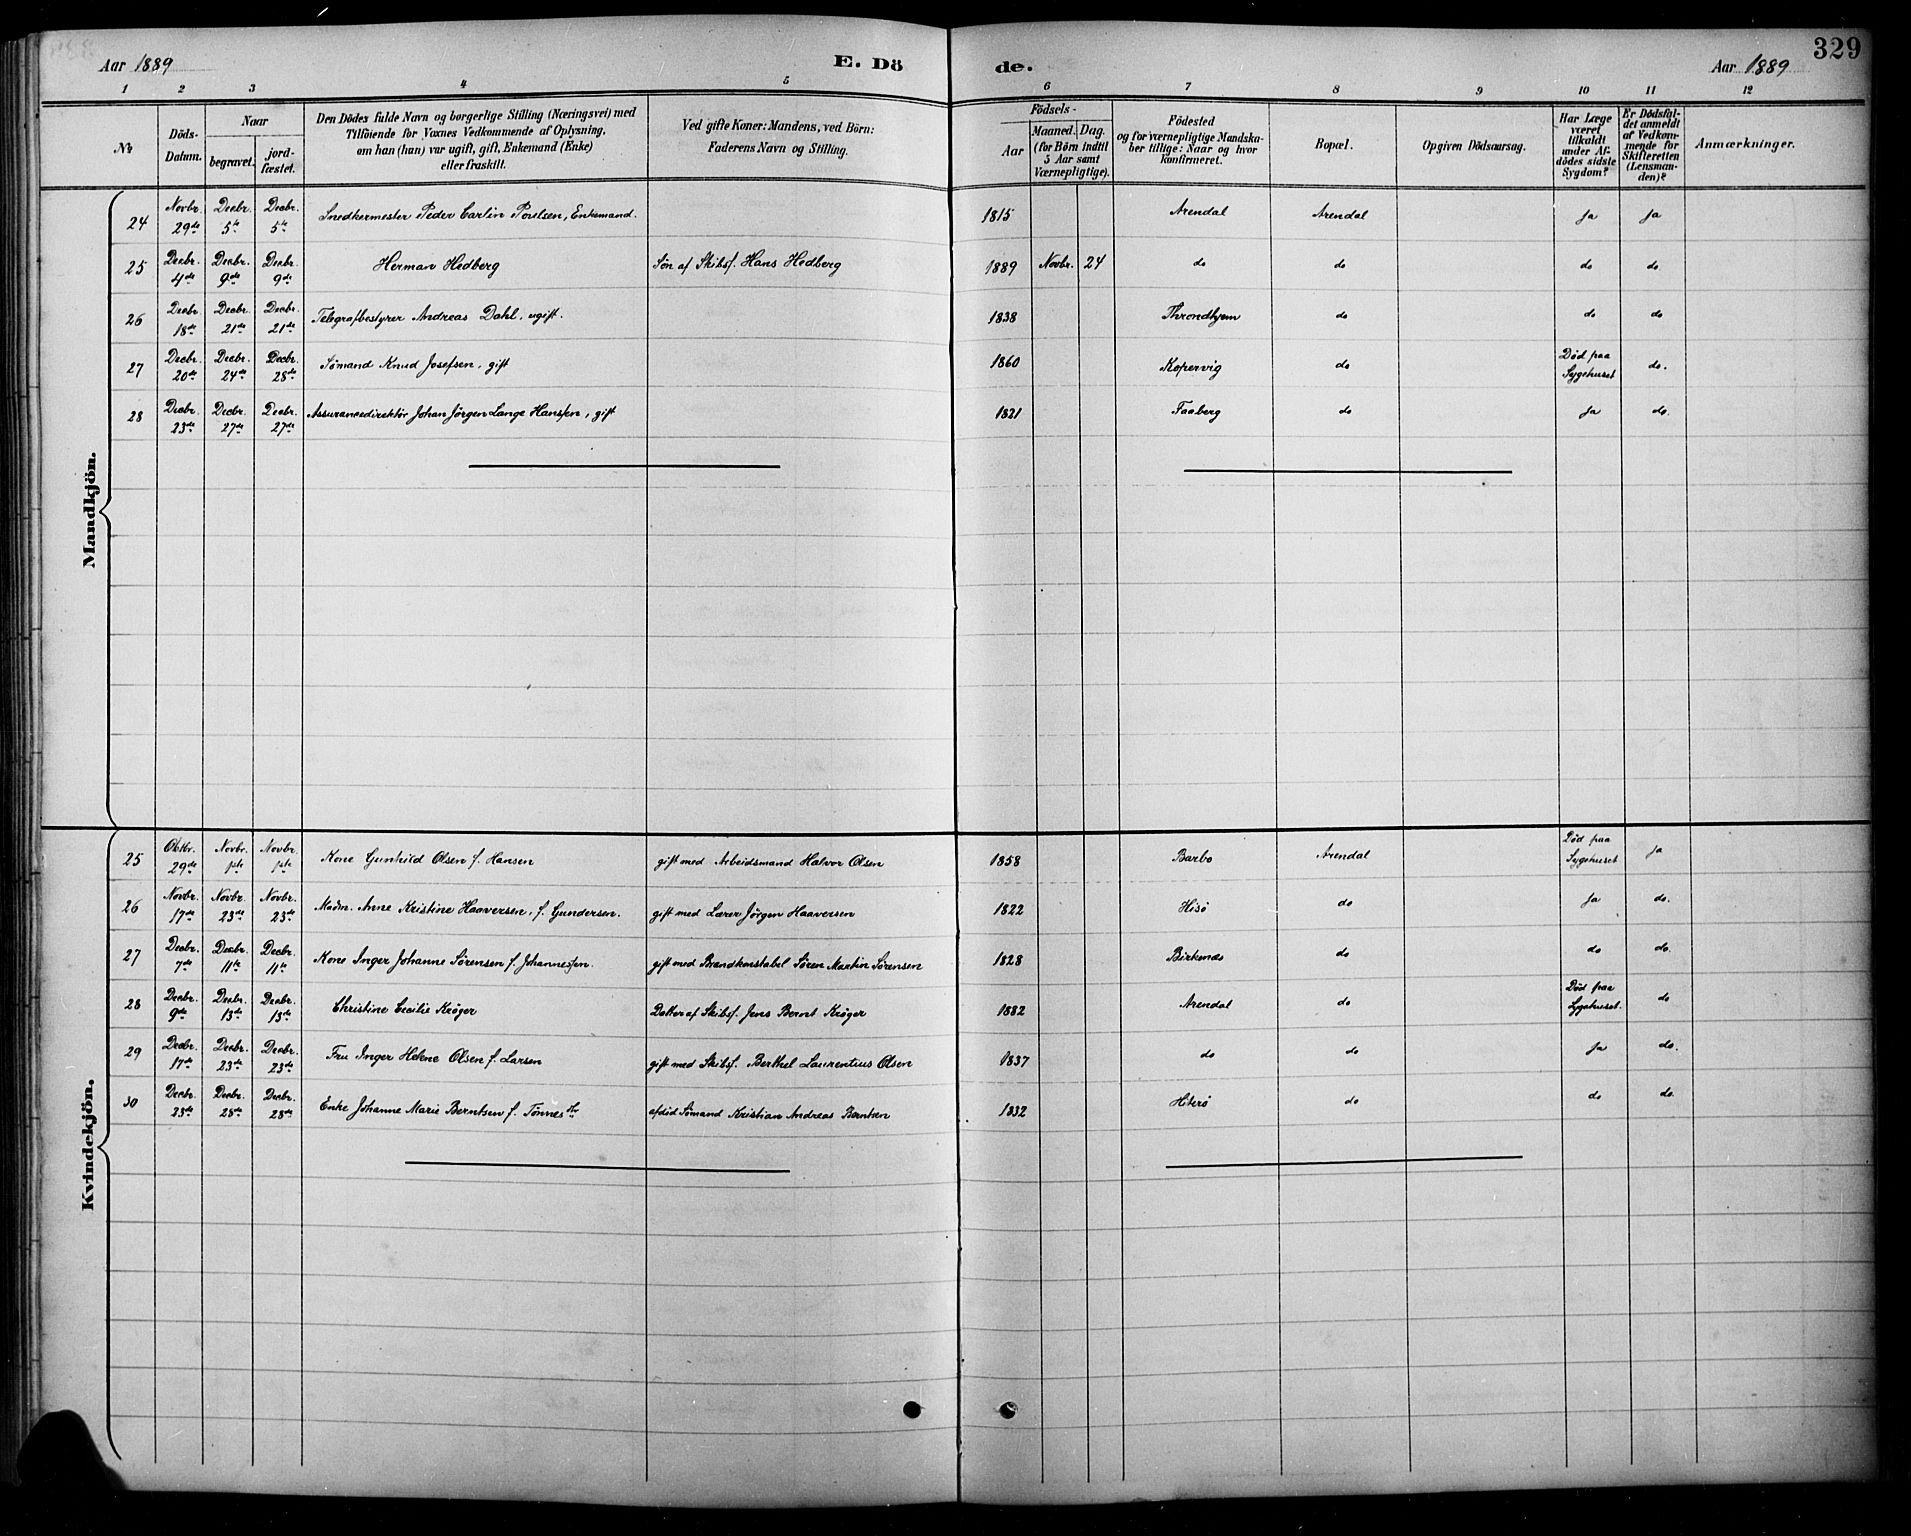 329
Aar 1889 E. Dö de. Aar 1889
1 2 3 4 5 6 7 8 9 10 11 12
№
Döds-Datum.
Naar
begravet.
jord-fæstet.
Den Dödes fulde Navn og borgerlige Stilling (Næringsvei) med
Tilföiende for Voxnes Vedkommende af Oplysning,
om han (hun) var ugift, gift, Enkemand (Enke)
eller fraskilt.
Ved gifte Koner: Mandens, ved Börn:
Faderens Navn og Stilling.
Födsels-
Aar
Maaned. Dag.
(for Börn indtil
5 Aar samt
Værnepligtige).
Födested
og for værnepligtige Mandska-
ber tillige: Naar og hvor
konfirmeret.
Bopæl.
Opgiven Dödsaarsag.
Har Læge
været
tilkaldt
under Af-
dödes sidste
Sygdom?
Er Dödsfal-
det anmeldt
af Vedkom-
mende for
Skifteretten
(Lensman-
den)?
Anmærkninger.
Mandkjön.
24 Novbr. 29de Decbr. 5te Decbr. 5te Snedkermester Peder Carlin Poulsen, Enkemand. 1815 Arendal Arendal Ja Ja
25 Decbr. 4de Decbr. 9de Decbr. 9de Herman Hedberg Søn af Skibsf. Hans Hedberg 1889 Novbr. 24 do do do do
26 Decbr. 18de Decbr. 21de Decbr. 21de Telegrafbestyrer Andreas Dahl, ugift. 1838 Throndhjem do do do
27 Decbr. 20de Decbr. 24de Decbr. 28de Sømand Knud Josefsen, gift 1860 Kopervig do Død paa Sygehuset do.
28 Decbr. 23de Decbr. 27de Decbr. 27de Assurancedirektør Johan Jørgen Lange Hanssen, gift 1821 Faaberg do Ja do.
Kvindekjön.
25 Oktbr. 29de Novbr. 1ste Novbr. 1ste Kone Gunhild Olsen f. Hansen gift med Arbeidsmand Halvor Olsen 1858 Barbo Arendal Død paa Sygehuset Ja
26 Novbr. 17de Novbr. 23de Novbr. 23de Madm. Anne Kristine Haaversen, f. Gundersen. gift med Lærer Jørgen Haaversen 1822 Hisø do Ja do.
27 Decbr. 7de Decbr. 11te Decbr. 11te Kone Inger Johanne Sørensen f. Johannessen. gift med Brandkonstabel Søren Martin Sørensen 1828 Birkenæs do do do.
28 Decbr. 9de Decbr. 13de Decbr. 13de Christine Cecilie Krøger Datter af Skibsf. Jens Bernt Krøger 1882 Arendal do Død paa Sygehuset. do
29 Decbr. 17de Decbr. 23de Decbr. 23de Fru Inger Helene Olsen f. Larsen gift med Skibsf. Berthel Laurentius Olsen 1837 do do Ja do.
30 Decbr. 23de Decbr. 28de Decbr. 28de Enke Johanne Marie Berntsen f. Tønnesdr afdød Sømand Kristian Andreas Berntsen 1832 Hiterø do do do.